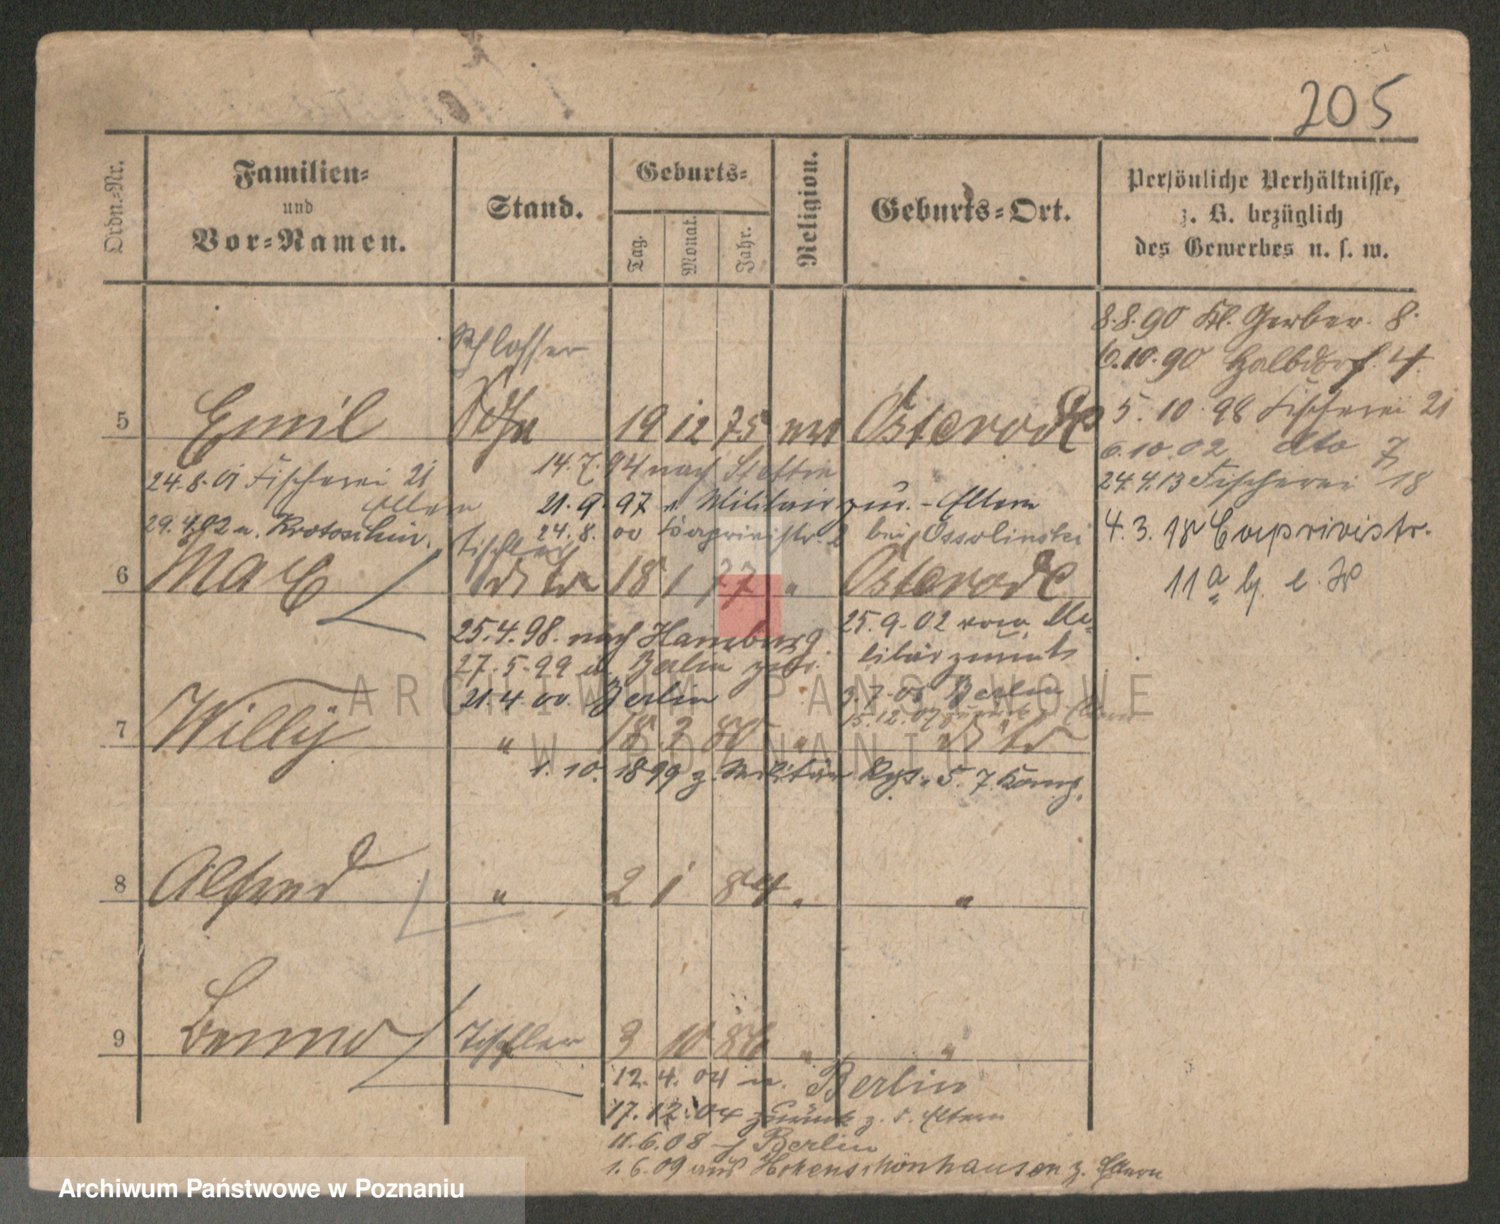 205
Ordn.-Nr.
Familien-
und
Vor-Namen.
Stand.
Geburts-
Tag.
Monat.
Jahr.
Religion.
Geburts-Ort.
Persönliche Verhältnisse,
z. B. bezüglich
des Gewerbes u. s. w.
8.8.90 Kl. Gerber. 8.
6.10.90 Halbdorf. 4.
5.10.98 Fischerei 21
6.10.02 dto 7
24.4.13 Fischerei 18
4.3.18 Caprivistr.
11a
Schlosser
5 Emil 19 12 75 Osterode
24.8.01 Fischerei 21
Eltern
29.4.02 n. Krotoschin.
14.7.94 nach Stettin
21.9.97 v. Militair zur. - Eltern
24.8.00 Caprivistr. 2 bei Ossolinski
Tischler
6 Max dito 18 1 77 " Osterode
25.4.98. nach Hamburg.
27.5.99 Berlin
21.4.00. Berlin
25.9.02 vom Mi-
litär zurück
3.7.06 Berlin
15.12.07 zurück z. Eltern
7 Willy " 18 3 80 " dito
1.10.1899 z. Militär Rgt. 5. 7. Komp.
8 Alfred " 2 1 84 " "
9 Benno Tischler 3 10 86 " "
12.4.04 n. Berlin
17.12.04 zurück z. d. Eltern
11.6.08 Berlin
1.6.09 aus Hohenschönhausen z. Eltern
ARCHIWUM PAŃSTWOWE
W POZNANIU
Archiwum Państwowe w Poznaniu